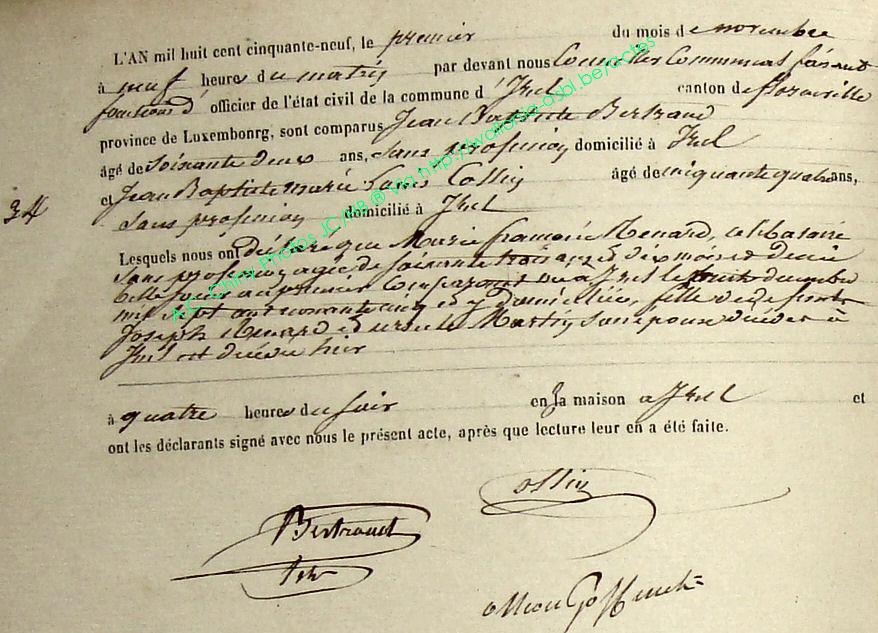 L'AN mil huit cent cinquante-neuf, le premier du mois de novembre
à neuf heures du matin par devant nous Conseiller Communal faisant
fonctions d' officier de l'état civil de la commune d' Izel canton de florenville
province de Luxembourg, sont comparus Jean Baptiste Bertrand
âgé de soixante deux ans, sans profession domicilié à Izel
34
et Jean Baptiste marie Louis Collin âgé de cinquante quatre ans,
sans profession domicilié à Izel
Lesquels nous ont déclaré que Marie françoise Henard, célibataire
sans profession agée de soixante trois ans dix mois et demi
née à Izel le
mil sept cent nonante cinq et y domiciliée, fille de
Joseph Henard et ursule Martin son épouse décédés à
Izel est décédée hier
à quatre heures du soir en sa maison à Izel et
ont les déclarants signé avec nous le présent acte, après que lecture leur en a été faite.
ollin
Bertrand
A.C. Chiny Photos JC/MB @ Via http://wallonia-asbl.be/actes